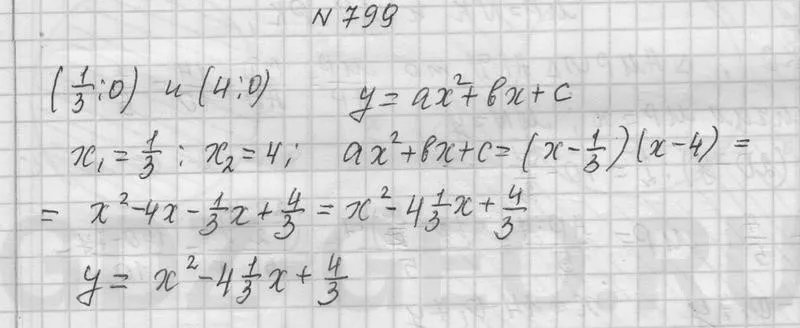 N 799
(1/3; 0) и (4; 0) y = ax² + bx + c
x₁ = 1/3 ; x₂ = 4; ax² + bx + c = (x - 1/3)(x - 4) =
= x² - 4x - 1/3x + 4/3 = x² - 4 1/3x + 4/3
y = x² - 4 1/3x + 4/3